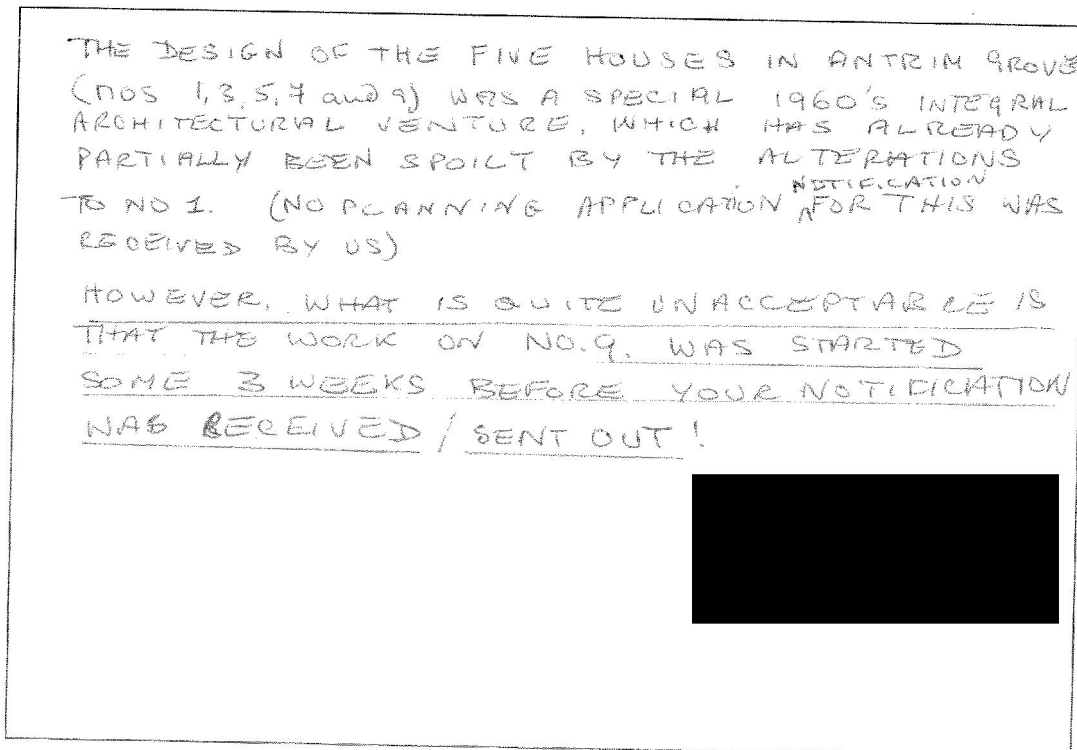 THE DESIGN OF THE FIVE HOUSES IN ANTRIM GROVE
(NOS 1,3,5,7 and 9) WAS A SPECIAL 1960'S INTEGRAL
ARCHITECTURAL VENTURE, WHICH HAS ALREADY
PARTIALLY BEEN SPOILT BY THE ALTERATIONS
TO NO 1. (NO PLANNING APPLICATION NOTIFICATION FOR THIS WAS
RECEIVED BY US)
HOWEVER, WHAT IS QUITE UNACCEPTABLE IS
THAT THE WORK ON NO.9. WAS STARTED
SOME 3 WEEKS BEFORE YOUR NOTIFICATION
WAS RECEIVED / SENT OUT!